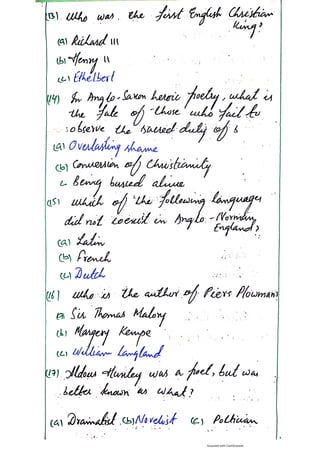 (13) Who was the first English Christian
King?
(a) Richard III
(b) Henry II
(c) Ethelbert
(14) In Anglo-Saxon heroic poetry, what is
the fate of those who fail to
observe the sacred duty of s
(a) Overlasting shame
(b) Conversion of Christianity
c- Being buried alive
(15) Which of the following languages
did not coexist in Anglo-Norman
England?
(a) Latin
(b) French
(c) Dutch
(16) Who is the author of Piers Plowman?
(a) Sir Thomas Malory
(b) Margery Kempe
(c) William Langland
(17) Aldous Huxley was a poet, but was
better known as what?
(a) Dramatist (b) Novelist (c) Politician
Scanned with CamScanner